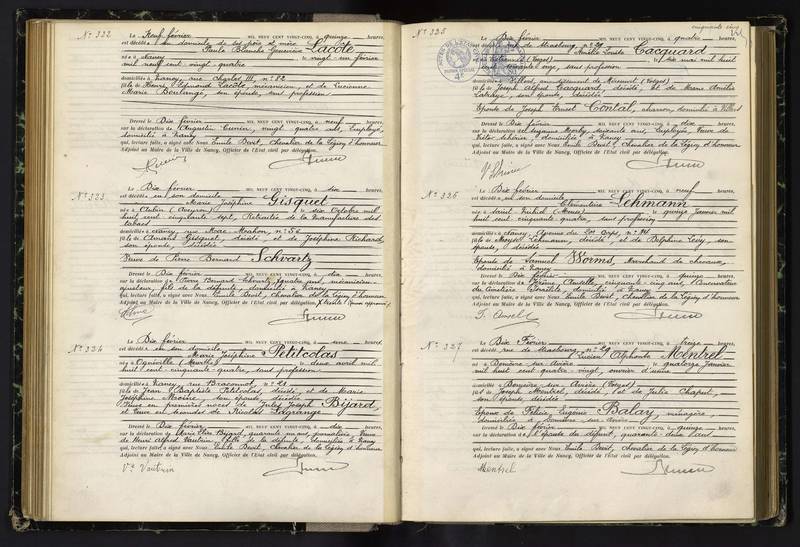 No 322
Le Neuf février MIL NEUF CENT VINGT-CINQ, à quinze heures,
est décédée au domicile de ses père et mère
Paule Blanche Geneviève Lacôte
née à Nancy le vingt un février
mil neuf cent vingt quatre
domiciliée à Nancy, rue Charles III, no 82
fille de Henri Edmond Lacôte, mécanicien, et de Lucienne
Marie Boulangé, son épouse, sans profession
Dressé le Dix février MIL NEUF CENT VINGT-CINQ, à neuf heures,
sur la déclaration de Augustin Cunin, vingt quatre ans, employé,
domicilié à Nancy
qui, lecture faite, a signé avec Nous Emile Bevit, Chevalier de la Légion d'honneur
Adjoint au Maire de la Ville de Nancy, Officier de l'Etat civil par délégation.
No 323
Le Dix février MIL NEUF CENT VINGT-CINQ, à dix heures,
est décédée en son domicile
Marie Joséphine Gisquet
née à Aubin (Aveyron) le dix Octobre mil
huit cent cinquante sept, Retraitée de la Manufacture des
tabacs
domiciliée à Nancy, rue Mac-Mahon, no 56
fille de Amand Gisquet, décédé, et de Joséphine Richard,
son épouse, décédée
Veuve de Pierre Bernard Schvartz
Dressé le Dix février MIL NEUF CENT VINGT-CINQ, à dix heures,
sur la déclaration de Pierre Bernard Schvartz, quatre ans, mécanicien
ajusteur, fils de la défunte, domicilié à Nancy
qui, lecture faite, a signé avec Nous Emile Bevit, Chevalier de la Légion d'honneur
Adjoint au Maire de la Ville de Nancy, Officier de l'Etat civil par délégation.
No 324
Le Dix février MIL NEUF CENT VINGT-CINQ, à une heures,
est décédée en son domicile
Marie Joséphine Petitcolas
née à Ogéviller (Meurthe) le deux avril mil
huit cent cinquante quatre, sans profession
domiciliée à Nancy, rue Braconnot, no 21
fille de Jean Baptiste Petitcolas, décédé, et de Marie
Joséphine, son épouse, décédée
Veuve en premières noces de Jules Joseph Bijard,
et veuve en secondes de Nicolas Lagrange
Dressé le Dix février MIL NEUF CENT VINGT-CINQ, à dix heures,
sur la déclaration de Bijard, quarante ans, journalière, Veuve
de Henri Alfred Vautrin, fille de la défunte, domiciliée à Nancy
qui, lecture faite, a signé avec Nous Emile Bevit, Chevalier de la Légion d'honneur
Adjoint au Maire de la Ville de Nancy, Officier de l'Etat civil par délégation.
Ve Vautrin
No 325
Le Dix février MIL NEUF CENT VINGT-CINQ, à quatre heures,
est décédée rue de Strasbourg, no 29
Amélie Louise Cacquard
(Vosges) le six mai mil huit
cent soixante onze, sans profession
domiciliée à Villers, arrondissement de Mirecourt (Vosges)
fille de Joseph Alfred Cacquard, décédé, et de Marie Amélie
Lahaye, son épouse, décédée
Epouse de Joseph Ernest Contal, charron, domicilié à Villers
Dressé le Dix février MIL NEUF CENT VINGT-CINQ, à dix heures,
sur la déclaration de Suzanne, soixante ans, employée, Veuve de
Victor, domiciliée à Nancy
qui, lecture faite, a signé avec Nous Emile Bevit, Chevalier de la Légion d'honneur
Adjoint au Maire de la Ville de Nancy, Officier de l'Etat civil par délégation.
No 326
Le Dix février MIL NEUF CENT VINGT-CINQ, à neuf heures,
est décédée en son domicile
Clémentine Lehmann
née à Saint Mihiel (Meuse) le quinze Janvier mil
huit cent cinquante quatre, sans profession
domiciliée à Nancy, Avenue du 20e Corps, no 24
fille de Moyse Lehmann, décédé, et de Delphine Levy, son
épouse, décédée
Epouse de Samuel Worms, Marchand de chevaux,
domicilié à Nancy
Dressé le Dix février MIL NEUF CENT VINGT-CINQ, à quinze heures,
sur la déclaration de, cinquante cinq ans, Conservateur
du Cimetière Israélite, domicilié à Nancy
qui, lecture faite, a signé avec Nous Emile Bevit, Chevalier de la Légion d'honneur
Adjoint au Maire de la Ville de Nancy, Officier de l'Etat civil par délégation.
No 327
Le Dix Février MIL NEUF CENT VINGT-CINQ, à treize heures,
est décédé rue de Strasbourg, no 29
Lucien Alphonse Mentrel
né à le quatorze Janvier
mil huit cent quatre-vingt, ouvrier d'usine
domicilié à (Vosges)
fils de Joseph Mentrel, décédé, et de Julie Chaput,
son épouse, décédée
Epoux de Félicie Eugénie Balay, ménagère,
Dressé le Dix février MIL NEUF CENT VINGT-CINQ, à quinze heures,
sur la déclaration de l'épouse du défunt, quarante deux ans
qui, lecture faite, a signé avec Nous Emile Bevit, Chevalier de la Légion d'honneur
Adjoint au Maire de la Ville de Nancy, Officier de l'Etat civil par délégation.
Mentrel